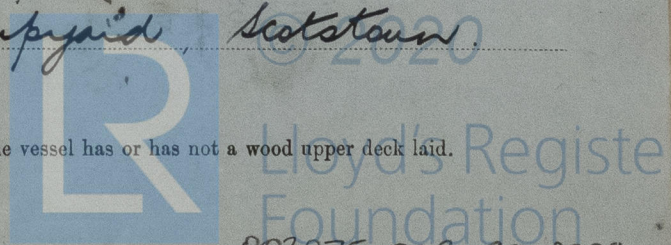 pyard, Scotstoun.
© 2020
LR
e vessel has or has not a wood upper deck laid.
Lloyd's Registe
Foundation